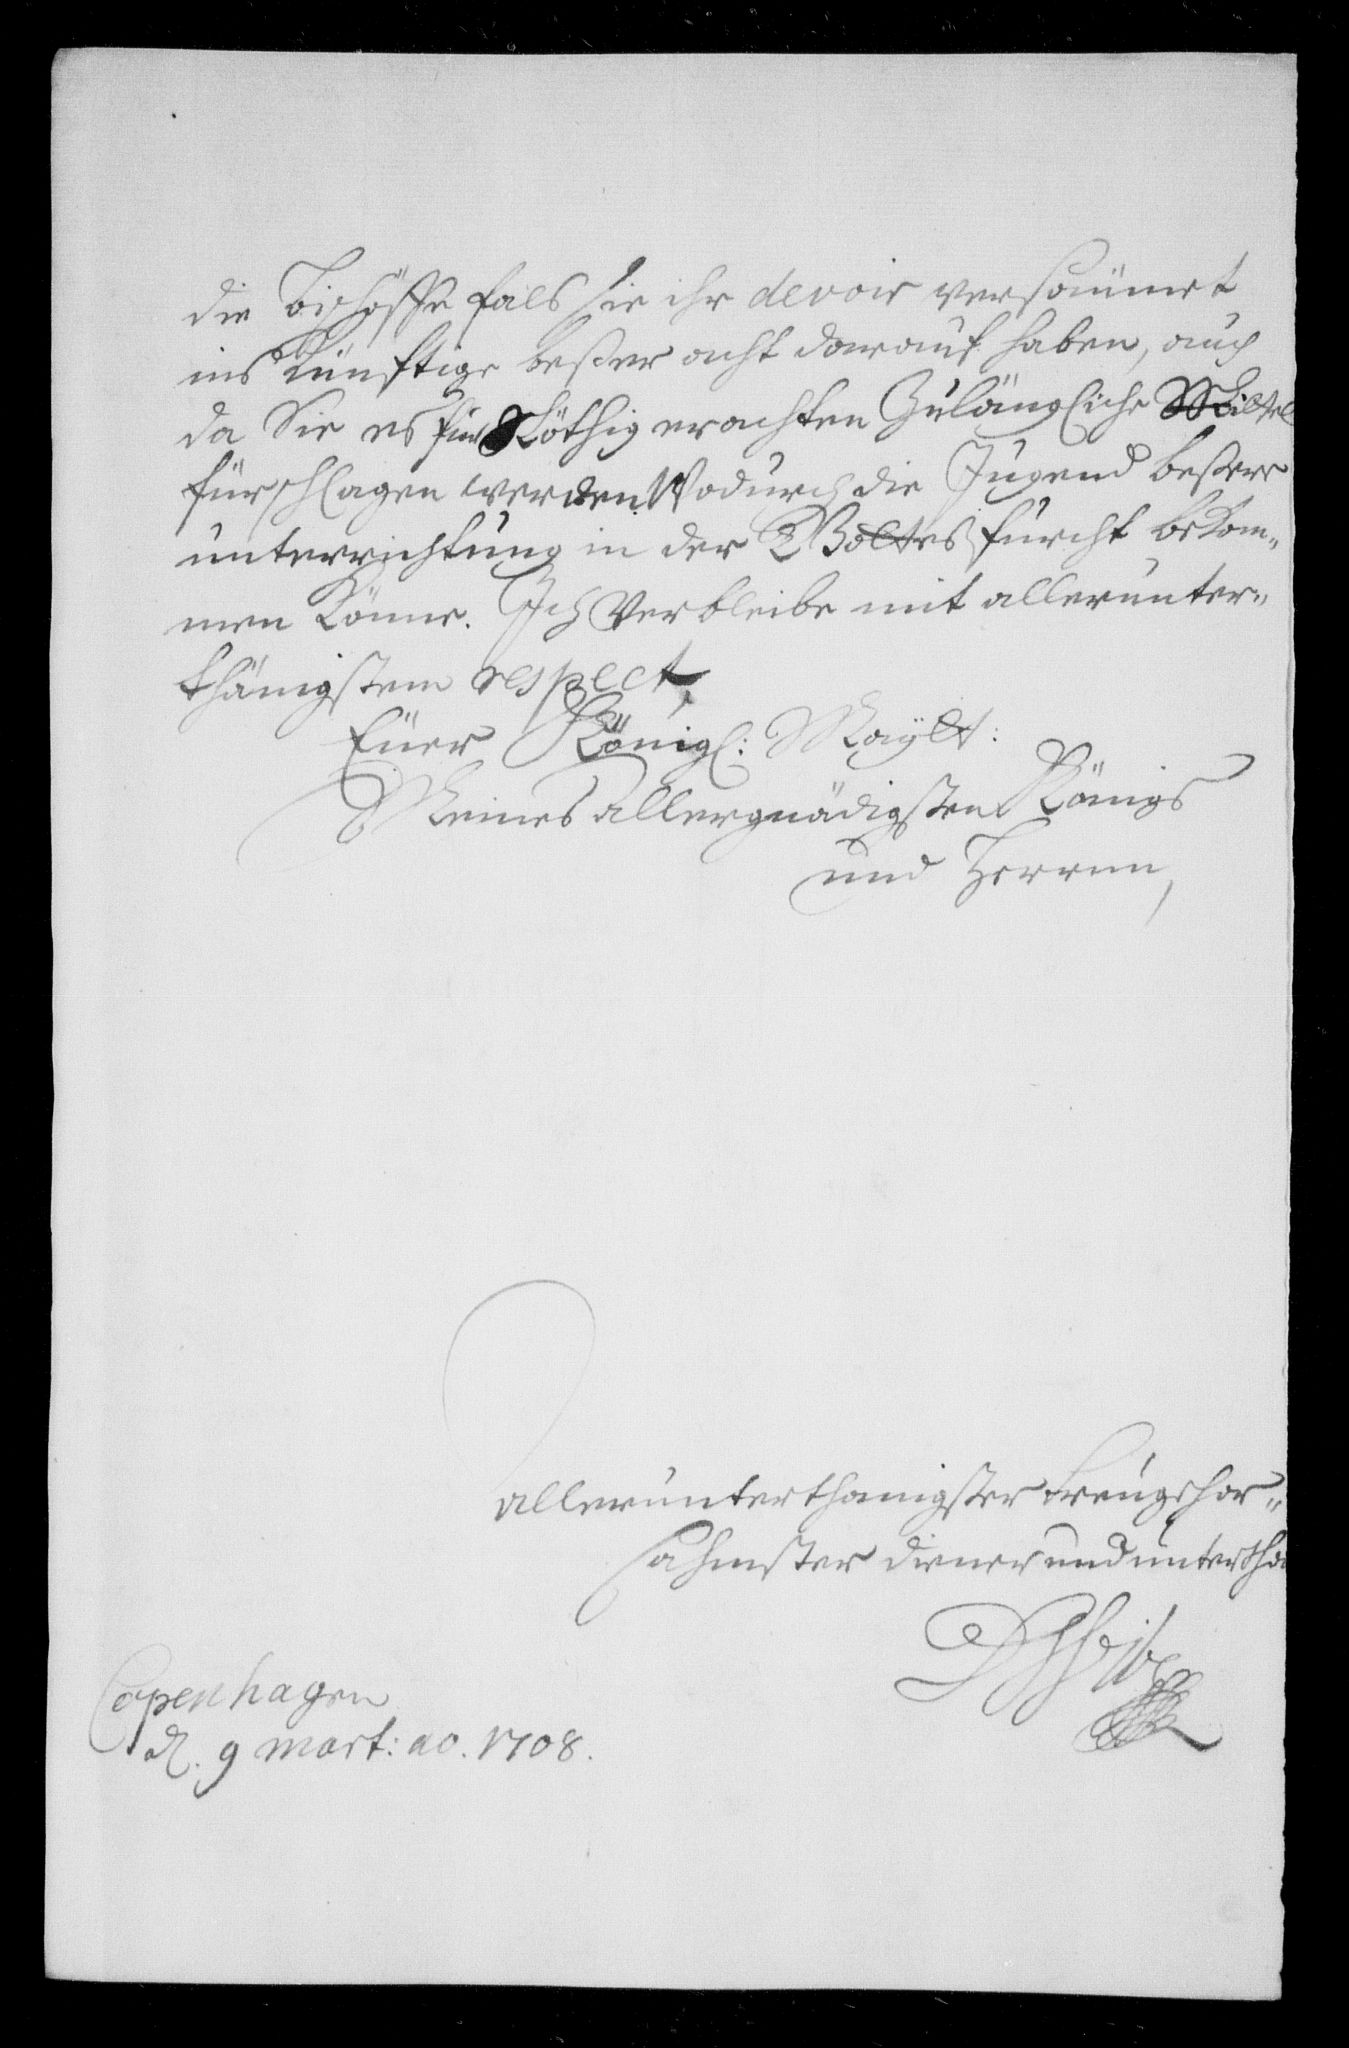 die Bischöffe fals sie ihr devoir versäümet
ins Künfftige beßer acht darauf haben, auch
da Sie es für Nöthig erachten Zulängliche Mittel
fürschlagen werden Wodurch die Jugend beßere
unterrichtung in der Gottes furcht bekom„
men Könne. Ich Verbleibe mit allerunter„
thänigstem respect,
Eüer Königl: Maÿtt:
Meines allergnädigsten Königs
und Herren,
allerunterthanigster treügehor„
sahmster diener und untertha
Copenhagen
d. 9 mart: ao. 1708.